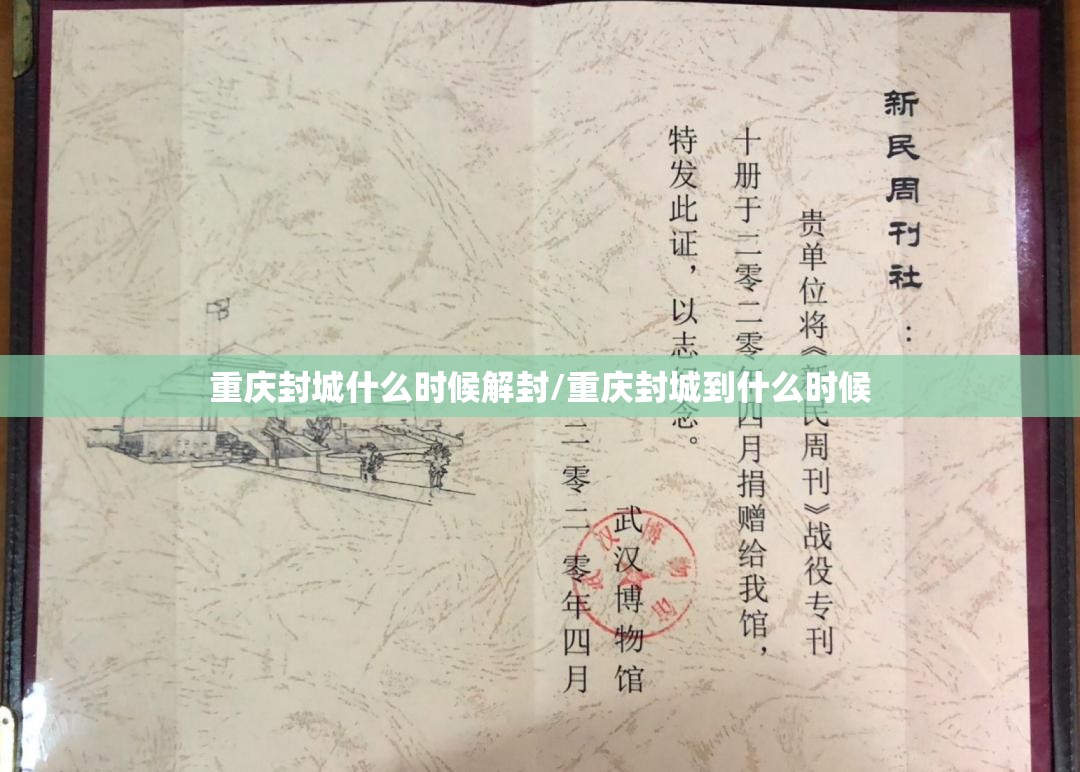 重庆封城什么时候解封/重庆封城到什么时候
新民周刊社：
贵单位将《新民周刊》战役专刊
十册于二零二零年四月捐赠给我馆，
特发此证，以志纪念。
武汉博物馆
二零二零年四月
武汉博物馆